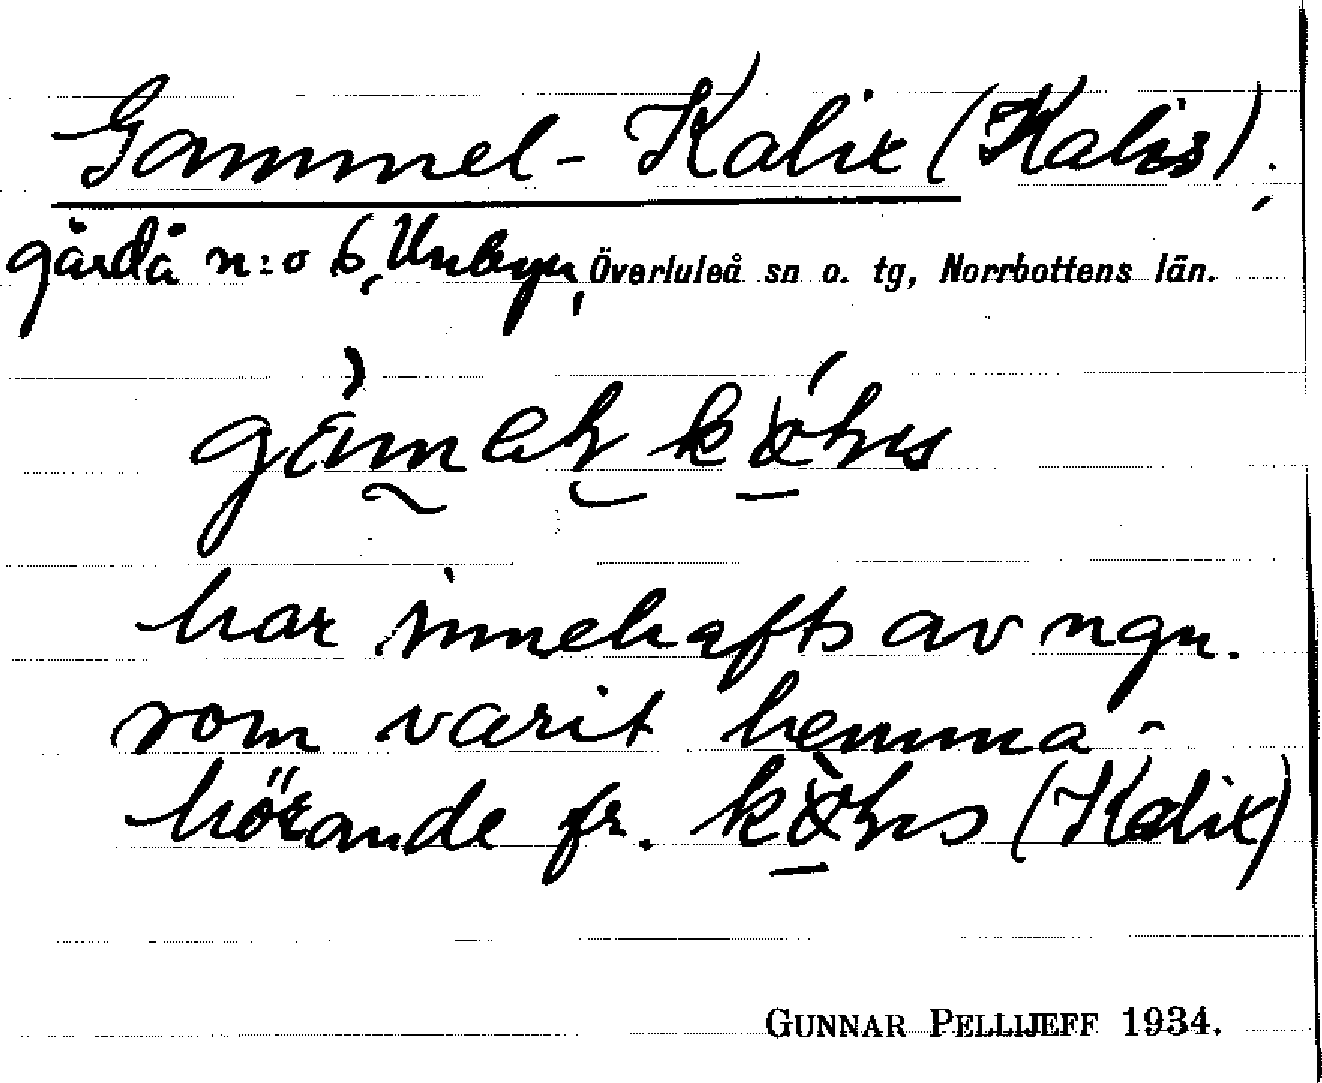 Gammel-Kalix (Kalis),
gårdå n:o 6, Unbyn, Överluleå sn o. tg, Norrbottens län.
har innehafts av ngn.
som varit hemma-
hörande fr. (Kalix)
GUNNAR PELLIJEFF 1934.